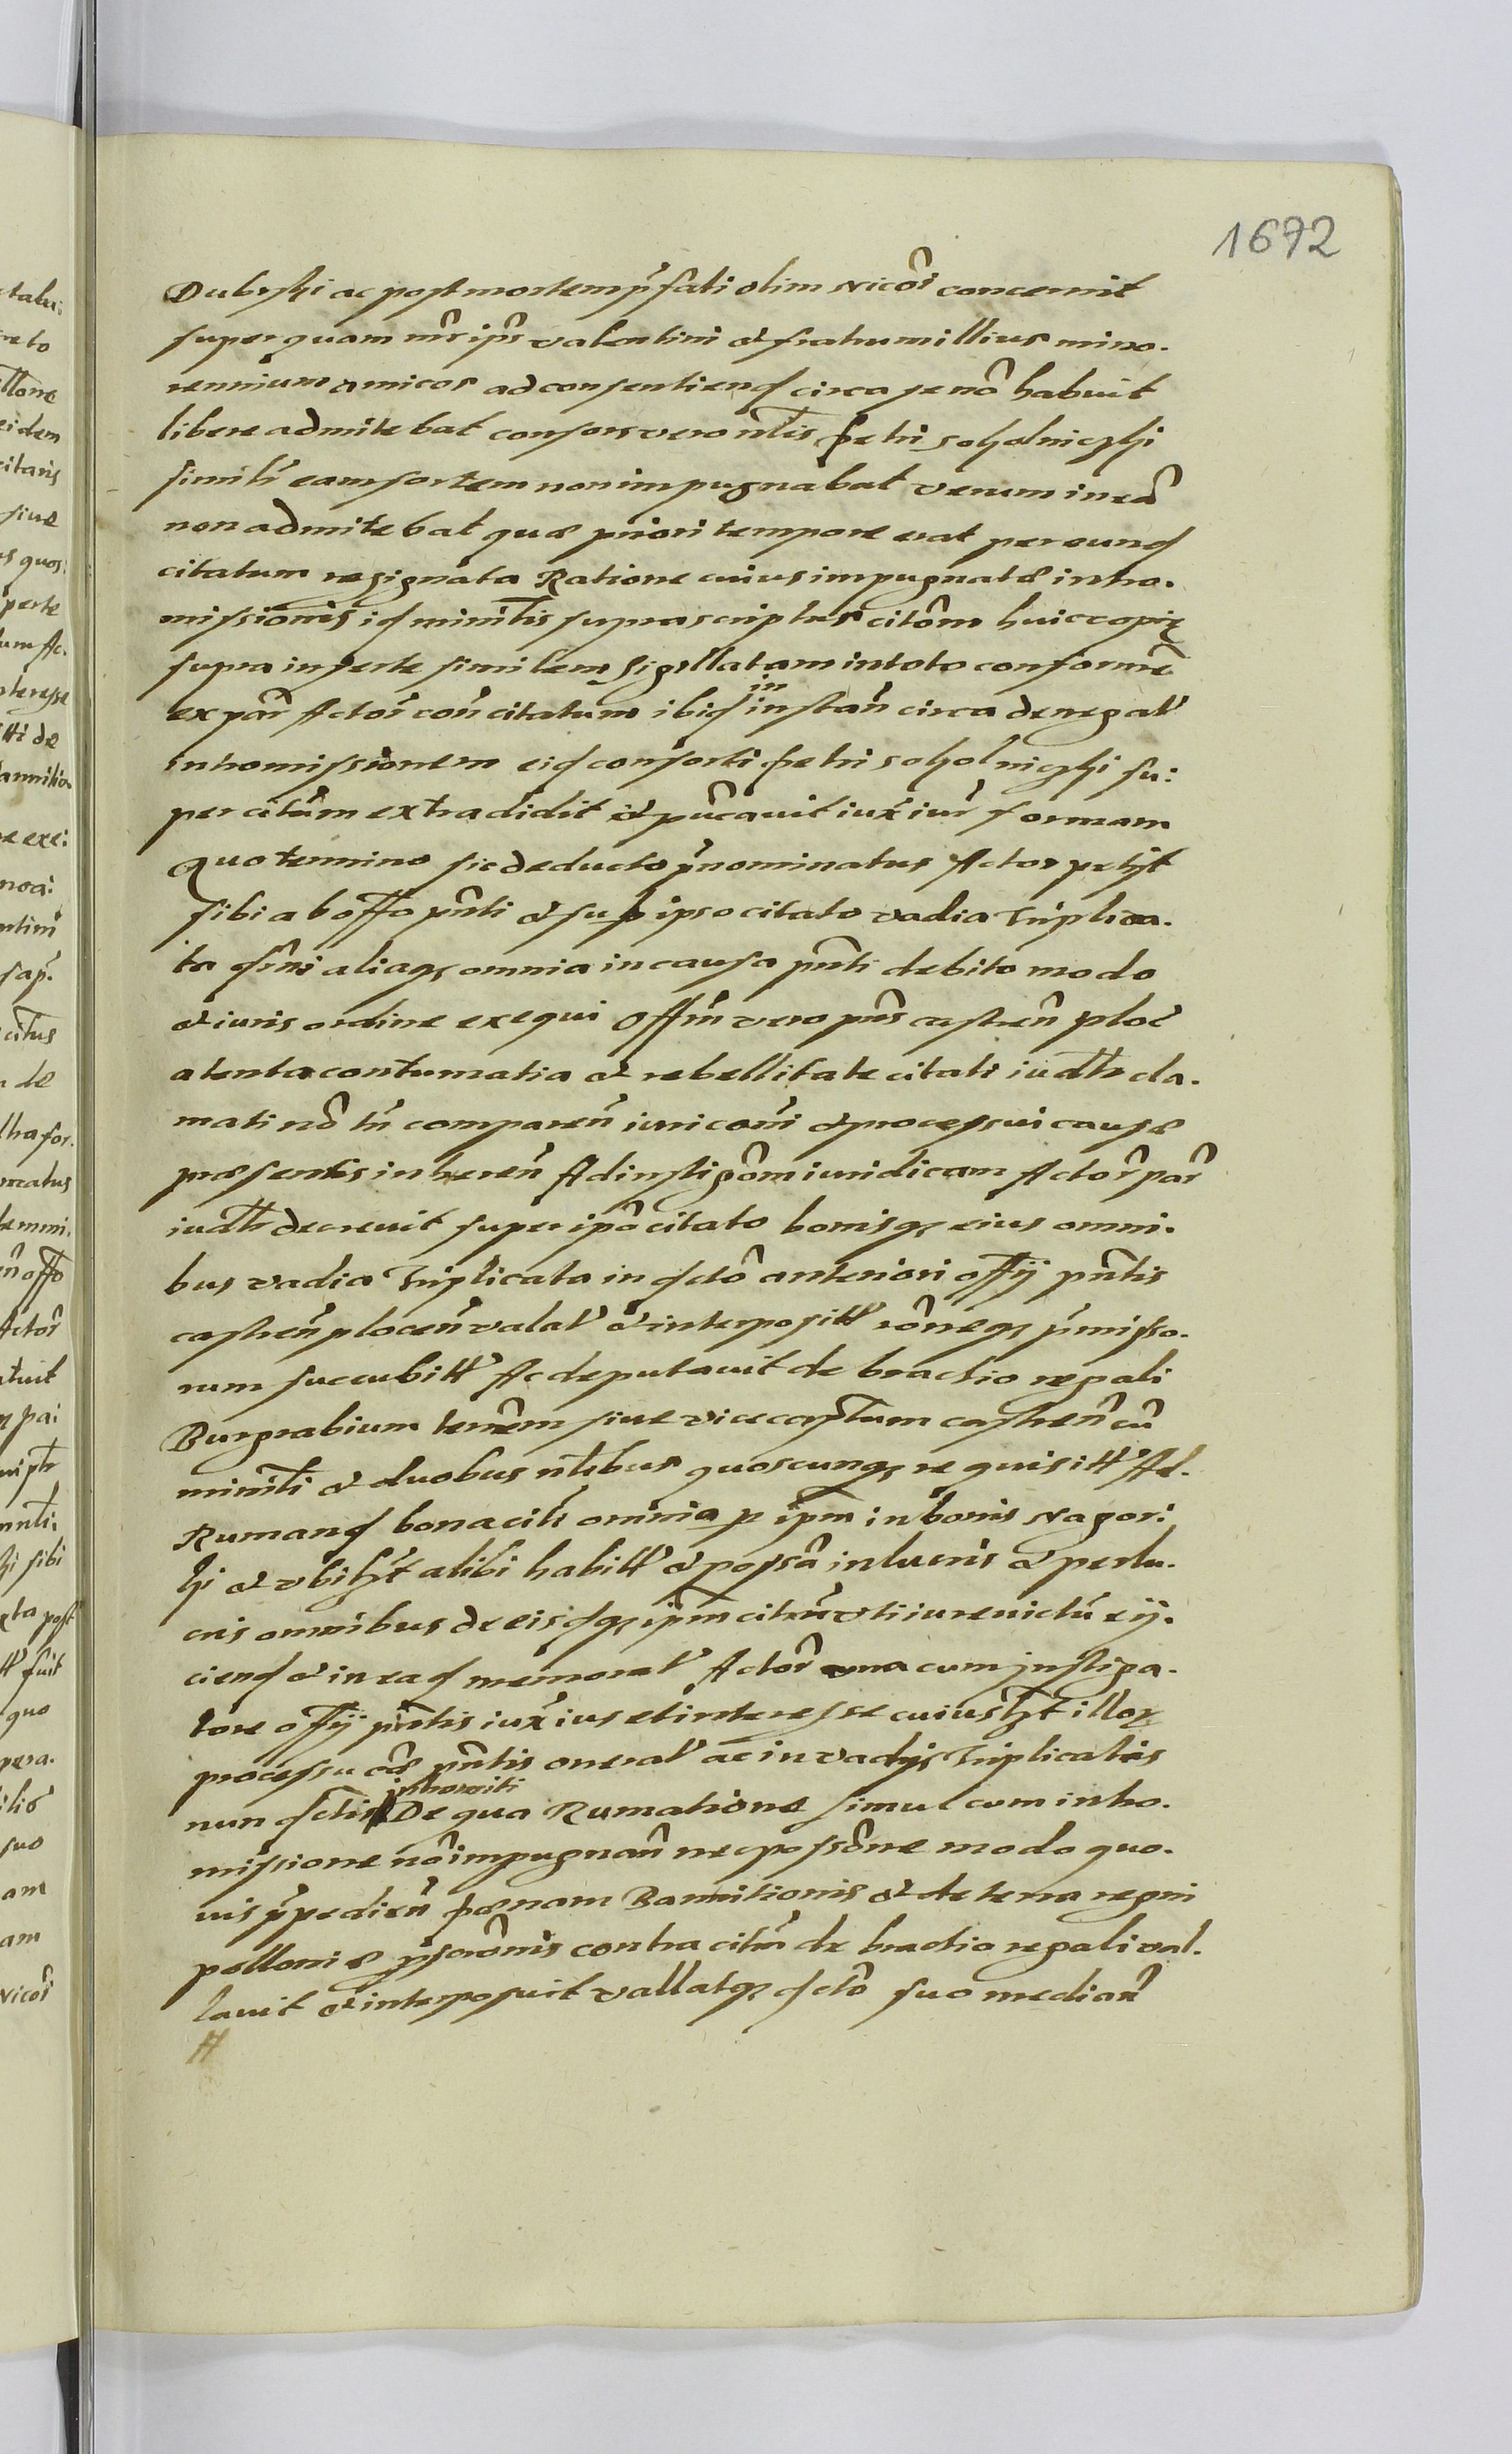 1672
Dubrski ac post mortem p̃fati olim Nicoĩ concernit
super quam mr̃ ipĩ Valentini et fratrum illius mino.
rennium amicos ad consentienđ circa se nõ habuit
libere admitebat consors vero nt̃lis Petri sokolniczki
similr̃ eam sortem non impugnabat verum in eã
non admitebat quæ priori tempore erat per eunđ
citatum resignata Ratione cuius impugnatæ intro.
missionis iđ minr̃lis suprascriptus citõm huic copiæ
supra inserte similem Sigillatam in toto conformẽ
ex par̃ Actor̃ coñ citatum ibiđ in instañ circa denegat'
intromissionem eiđ consorti Petri sokolniczki su:
per citũm extradidit et pũcavit iux̃ iur̃ formam
Quo termino sic deducto p̃nominatus Actor petyt
sibi ab offo pñti et sup ipso citato vadia Triplica.
ta đrni aliaq; omnia in causa pñti debito modo
et iuris ordine exequi Offm̃ vero pñs castreñ ploc̃
atenta contumatia et rebellitate citati iudtr cla.
mati nõ tñ compareñ iuri coñi et processui causæ
præsentis inhereñ Ad instigõm iuridicam Actor̃ par̃
iudtr decrevit super ipõ citato bonisq; eius omni.
bus vadia Triplicata in đctõ anteriori offÿ pñtis
castreñ ploceñ valat' et interposit' rõneq; p̃misso.
rum succubitt' Ac deputavit de brachio regali
Burgrabium terrẽm sive vicecaptum castreñ cũ
minr̃li et duobus nt̃libus quoscunq; requisitt' Ad.
Rumanđ bona cit̃i omnia p ipm in bonis Nagor:
ki et vbilz̃t alibi habitt' et possã in lucris et perlu.
cris omnibus de eisđq; ipm citũm vti iure victũ eÿ.
ciend et in eađ memorat' Actor̃ vna cum jnstiga.
tore offÿ pñtis iux̃ ius et interesse cuiuslz̃t illoꝝ
processu cæ pñtis onerat' ac in vadÿs Triplicatis
introm̃iti
nun đctis De qua Rumatione simul cum intro.
missione nõ impugnañ nec possõne modo quo.
vis p̃pedieñ pœnam Bannitionis et de terra regni
polloniæ p̃scrõnis contra citũm de brachio regali val.
lavit et interposuit vallatq; đctõ suo mediañ
H